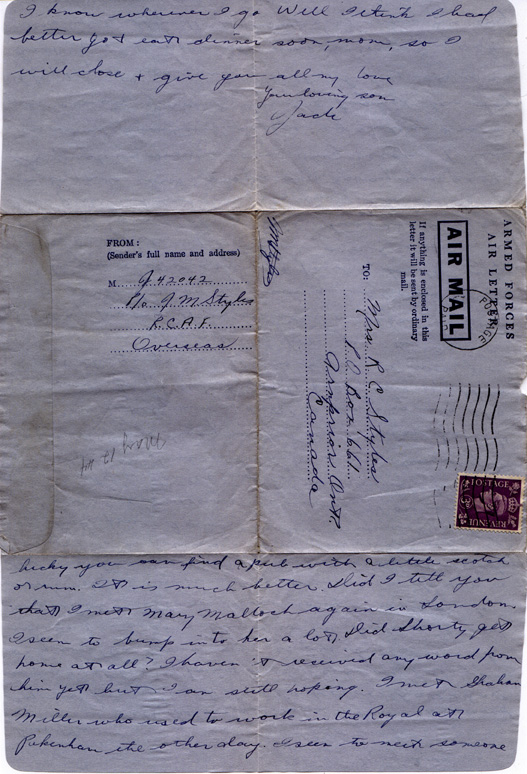 I know wherever I go Well I think I had
better go & eat dinner soon, mom, so I
will close & give you all my love
Your loving son
Jack
FROM :
(Sender's full name and address)
M J.42042
P/o J M Styles
R.C.A.F.
Overseas
May 17 44
J M Styles
ARMED FORCES
AIR LETTER
AIR MAIL
If anything is enclosed in this
letter it will be sent by ordinary
mail.
TO:
Mrs. R C Styles
P.O. Box 661
Arnprior Ont.
Canada
POSTAGE
PAID
POSTAGE
REVENUE
lucky you can find a pub with a little scotch
or rum. It is much better. Did I tell you
that I met Mary Malloch again in London.
I seem to bump into her a lot. Did Shorty get
home at all? I haven't received any word from
him yet but I am still hoping. I met Graham
Miller who used to work in the Royal at
Pakenham the other day. I seem to meet someone